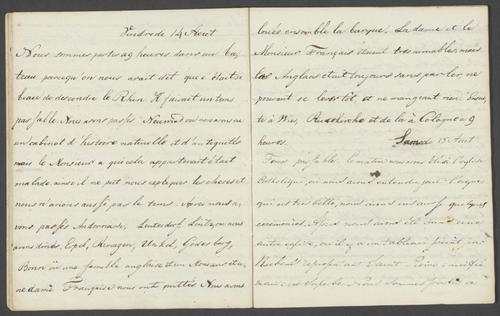 Vendredi 14 Août
Nous sommes partes a 9 heures dans un ba-
teau parcequ'on nous avait dit que c'était si
beau de descendre le Rhin. Il faisait un tems
passable. Nous avons passés Neuwied ou nous avons vu
un cabinet d'histoire naturelle et d'antiquités
mais le Monsieur a qui cela appartenait était
malade ainsi il ne put nous expliquer les choses et
nous n'avions aussi pas le tems. Après nous a-
vons passés Andernade, Leutesdorf, Lintz, ou nous
avons dinés, Erpel, Remagen, Unkel, Godesberg,
Bonn où une famille anglaise et un Monsieur et u-
ne dame Française nous ont quittés. Nous avons
loués ensemble la barque. La dame et le
Monsieur Français étaient tres aimables, mais
les Anglais étaient toujours sans parler, ne
pouvant se lever tôt, et ne mangeant rien. Ensui-
te à Wies, et de là à Cologne a 9
heures.
Samedi 15 Août
Tems passable. Le matin nous avons été à l'église
Catholique, où nous avons entendu jouer l'orgue
qui est très belle, nous avons vu aussi quelques
cérémonies. Après nous avons été dans une
autre église, où il y a un tableau peint par
Rubens représentant Saint Pierre crucifié
mais c'est superbe. Nous sommes partis a